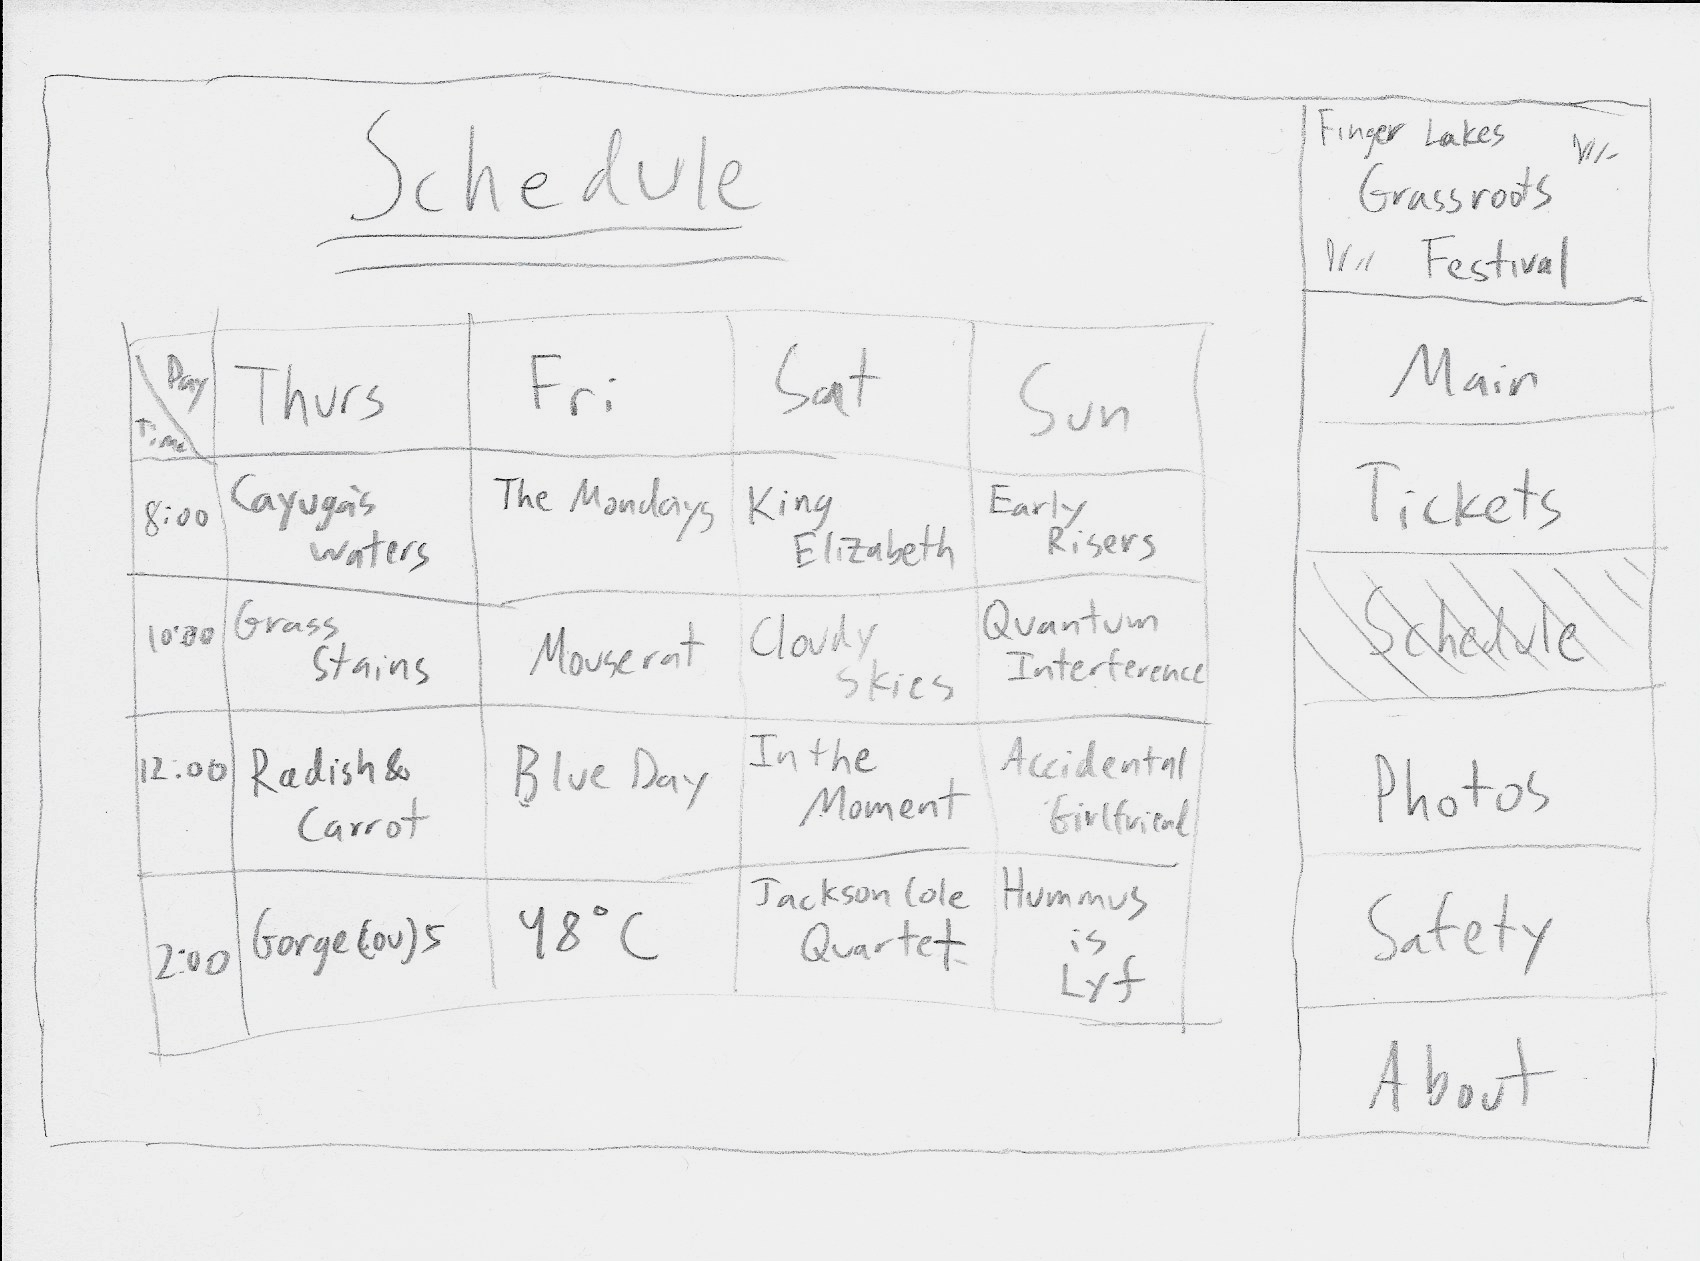 Schedule
Day
Time
Thurs
Fri
Sat
Sun
8:00
Cayuga's
Waters
The Mondays
King
Elizabeth
Early
Risers
10:00
Grass
Stains
Mouserat
Cloudy
Skies
Quantum
Interference
12:00
Radish &
Carrot
Blue Day
In the
Moment
Accidental
Girlfriend
2:00
Gorge(ou)s
48°C
Jackson Cole
Quartet
Hummus
is
Lyf
Finger Lakes
Grassroots
Festival
Main
Tickets
Schedule
Photos
Safety
About